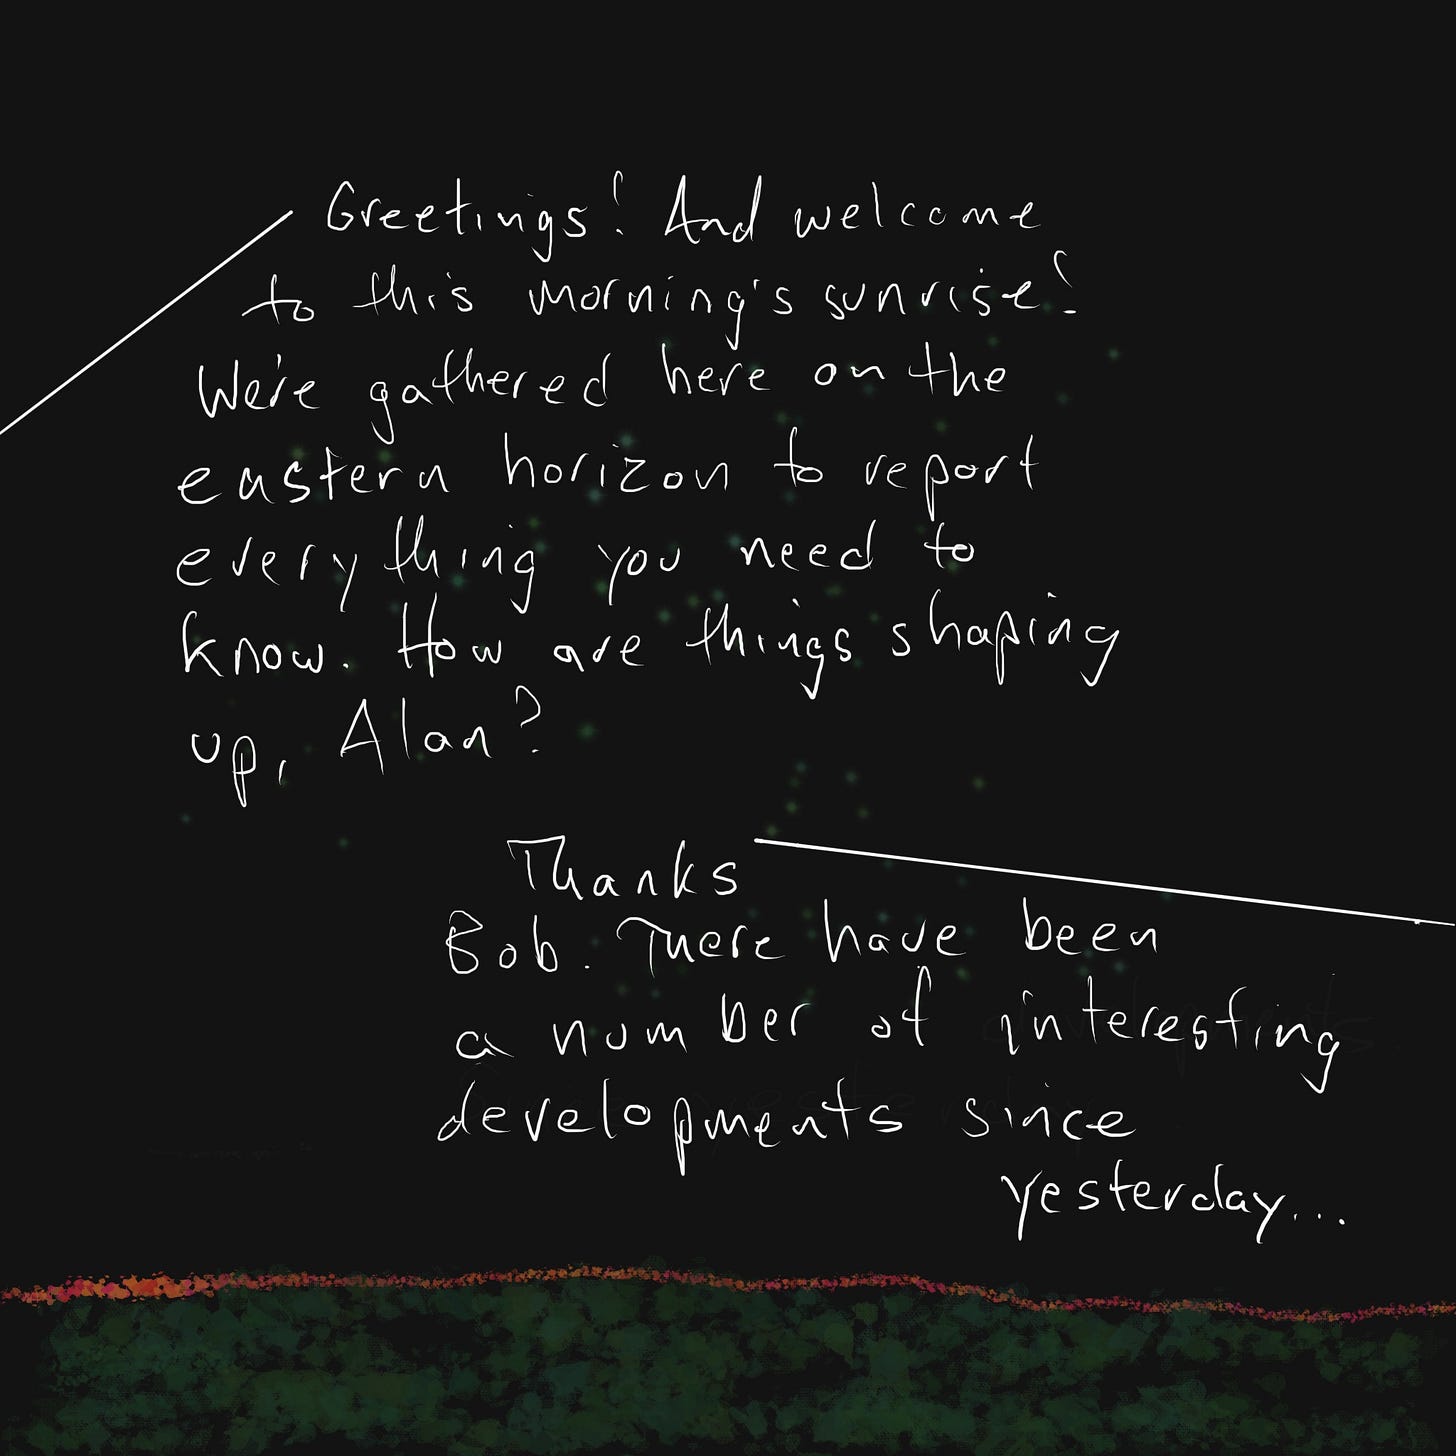 Greetings! And welcome
to this morning's sunrise!
We're gathered here on the
eastern horizon to report
everything you need to
know. How are things shaping
up, Alan?
Thanks
Bob. There have been
a number of interesting
developments since
yesterday...